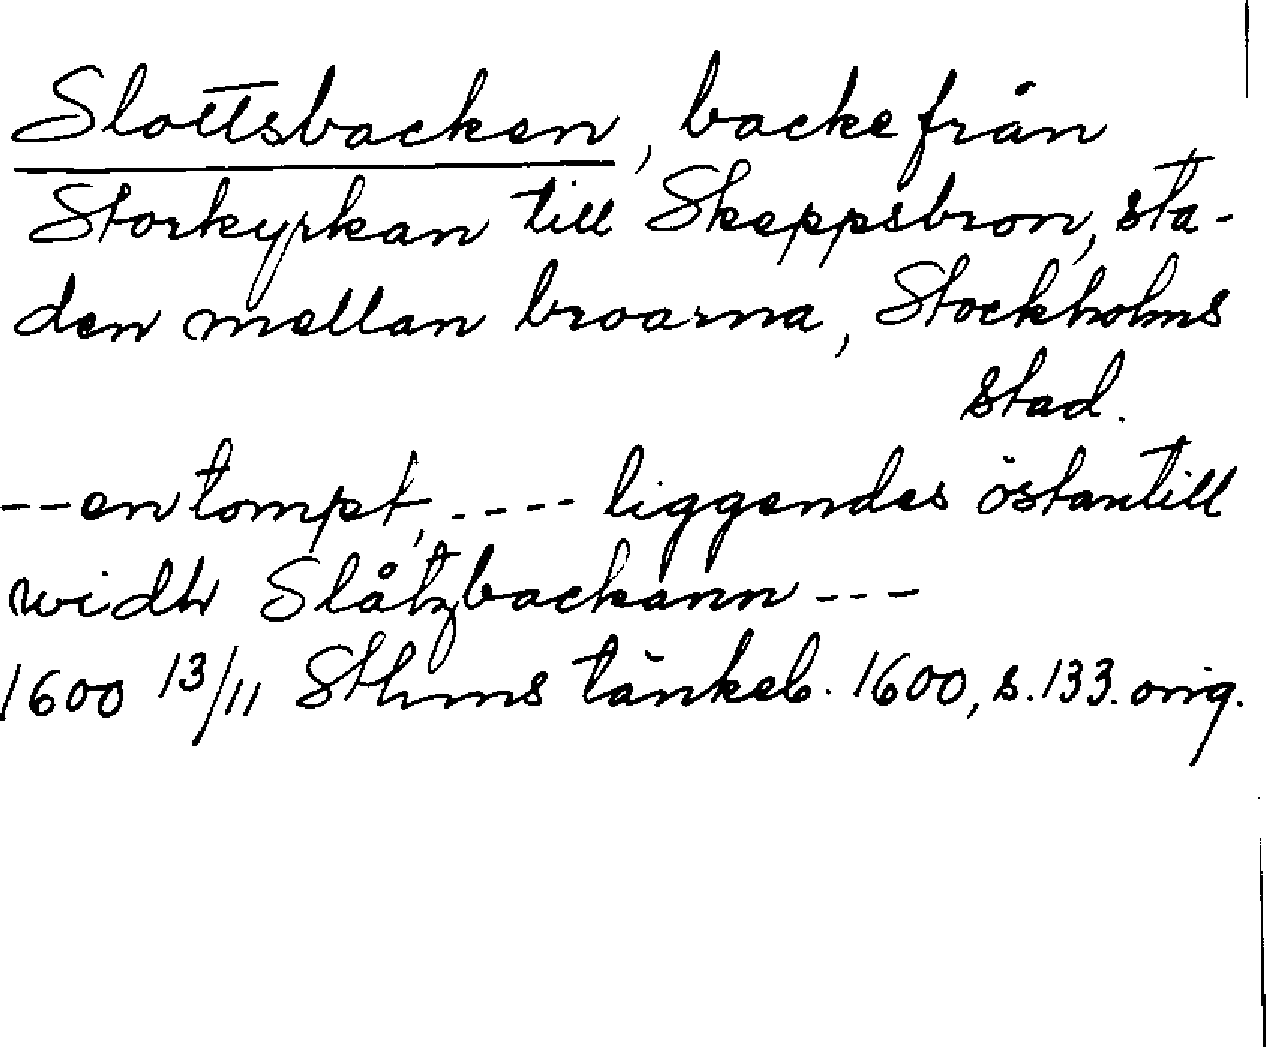 Slottsbacken, backe från
Storkyrkan till Skeppsbron, sta-
den mellan broarna, Stockholms
stad.
--en tompt, ---- liggendes östantill
widh Slåtzbackann ---
1600 13/11 Sthms tänkeb. 1600, s. 133. orig.